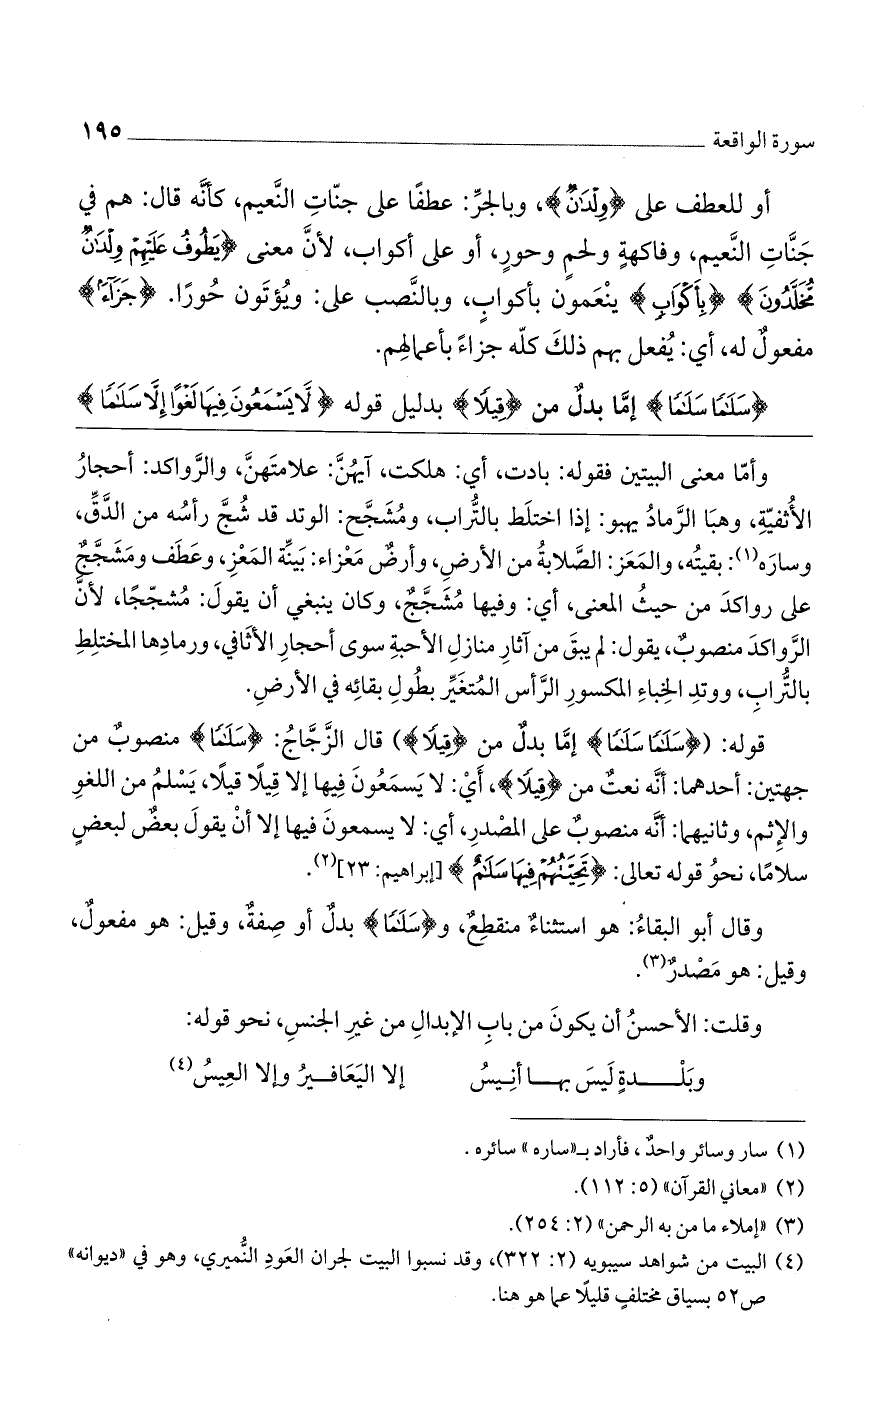 سورة الواقعة ١٩٥
أو للعطف على ﴿وِلْدَانٌ﴾، وبالجرِّ: عطفًا على جنّاتِ النَّعيم، كأنَّه قال: هم في
جَنَّاتِ النَّعيم، وفاكهةٍ ولحمٍ وحورٍ، أو على أكواب، لأنَّ معنى ﴿يَطُوفُ عَلَيْهِمْ وِلْدَانٌ
مُّخَلَّدُونَ﴾ ﴿بِأَكْوَابٍ﴾ ينْعَمون بأكوابٍ، وبالنَّصب على: ويُؤتَون حُورًا. ﴿جَزَآءً﴾
مفعولٌ له، أي: يُفعل بهم ذلكَ كلّه جزاءً بأعمالهِم.
﴿سَلَٰمًا سَلَٰمًا﴾ إمَّا بدلٌ من ﴿قِيلًا﴾ بدليل قوله ﴿لَّا يَسْمَعُونَ فِيهَا لَغْوًا إِلَّا سَلَٰمًا﴾
وأمّا معنى البيتين فقوله: بادت، أي: هلكت، آيهُنَّ: علامتَهنَّ، والرَّواكد: أحجارُ
الأُثفيّةِ، وهبَا الرَّمادُ يهبو: إذا اختلَط بالتُّراب، ومُشجَّج: الوتد قد شُجَّ رأسُه من الدَّقِّ،
وسارَه(١): بقيتُه، والمَعَز: الصَّلابةُ من الأرضِ، وأرضٌ مَعْزاء: بَيِّنة المَعْزِ، وعَطَف ومَشَجَّجٌ
على رواكدَ من حيثُ المعنى، أي: وفيها مُشَجَّجٌ، وكان ينبغي أن يقولَ: مُشجّجًا، لأنَّ
الرَّواكدَ منصوبٌ، يقول: لم يبقَ من آثارِ منازلِ الأحبةِ سوى أحجارِ الأثافي، ورمادِها المختلِطِ
بالتُّرابِ، ووتدِ الخِباءِ المكسورِ الرَّأس المُتغيِّر بطُولِ بقائِه في الأرضِ.
قوله: (﴿سَلَٰمًا سَلَٰمًا﴾ إمَّا بدلٌ من ﴿قِيلًا﴾) قال الزَّجَّاجُ: ﴿سَلَٰمًا﴾ منصوبٌ من
جهتين: أحدهما: أنَّه نعتٌ من ﴿قِيلًا﴾، أيْ: لا يَسمَعُونَ فِيها إلا قِيلًا قيلًا، يَسْلمُ من اللغوِ
والإثمِ، وثانيهما: أنَّه منصوبٌ على المصْدرِ، أي: لا يسمعونَ فيها إلا أنْ يقولَ بعضٌ لبعضٍ
سلامًا، نحوُ قوله تعالى: ﴿تَحِيَّتُهُمْ فِيهَا سَلَٰمٌ﴾ [إبراهيم: ٢٣](٢).
وقال أبو البقاءُ: هو استثناءٌ منقطِعٌ، و﴿سَلَٰمًا﴾ بدلٌ أو صِفةٌ، وقيل: هو مفعولٌ،
وقيل: هو مَصْدرٌ(٣).
وقلت: الأحسنُ أن يكونَ من بابِ الإبدالِ من غيرِ الجنسِ، نحو قوله:
وبَلْـــــدةٍ لَيسَ بهـــا أنِيسُ إلا اليَعَافـــيرُ وإلا العِيسُ(٤)
(١) سار وسائر واحدٌ، فأراد بـ«ساره» سائره.
(٢) «معاني القرآن» (٥: ١١٢).
(٣) «إملاء ما من به الرحمن» (٢: ٢٥٤).
(٤) البيت من شواهد سيبويه (٢: ٣٢٢)، وقد نسبوا البيت لجران العَودِ النُّميري، وهو في «ديوانه»
ص٥٢ بسياق مختلفٍ قليلًا عما هو هنا.